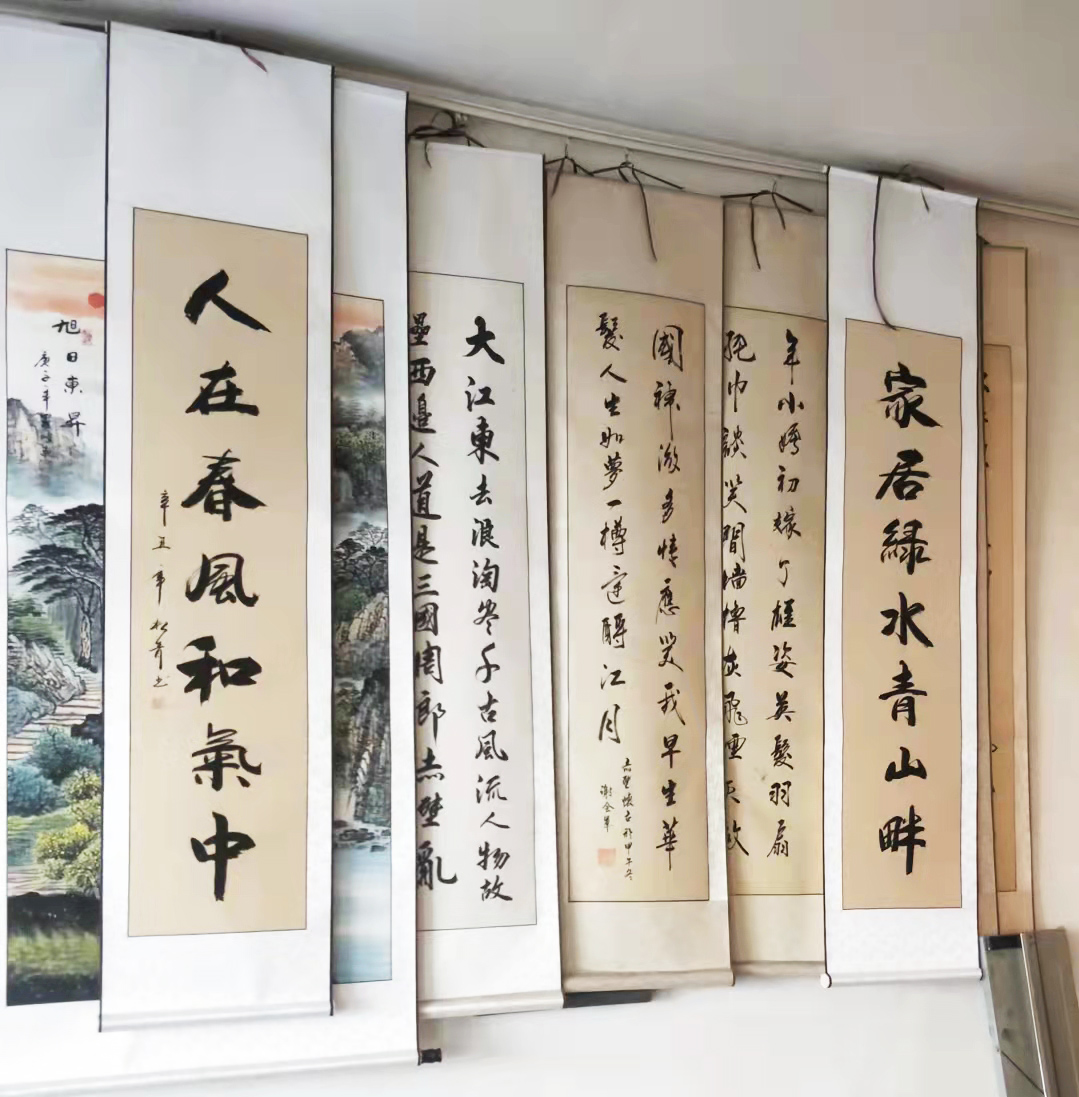 旭日東昇
庚子年
人在春風和氣中
辛丑年
大江東去浪淘尽千古風流人物故
壘西邊人道是三國周郎赤壁亂
國神遊多情應笑我早生華
髮人生如夢一樽還酹江月
赤壁懷古於甲午冬
年小嬌初嫁了雄姿英髮羽扇
綸巾談笑間檣櫓灰飛煙灭故
家居緑水青山畔